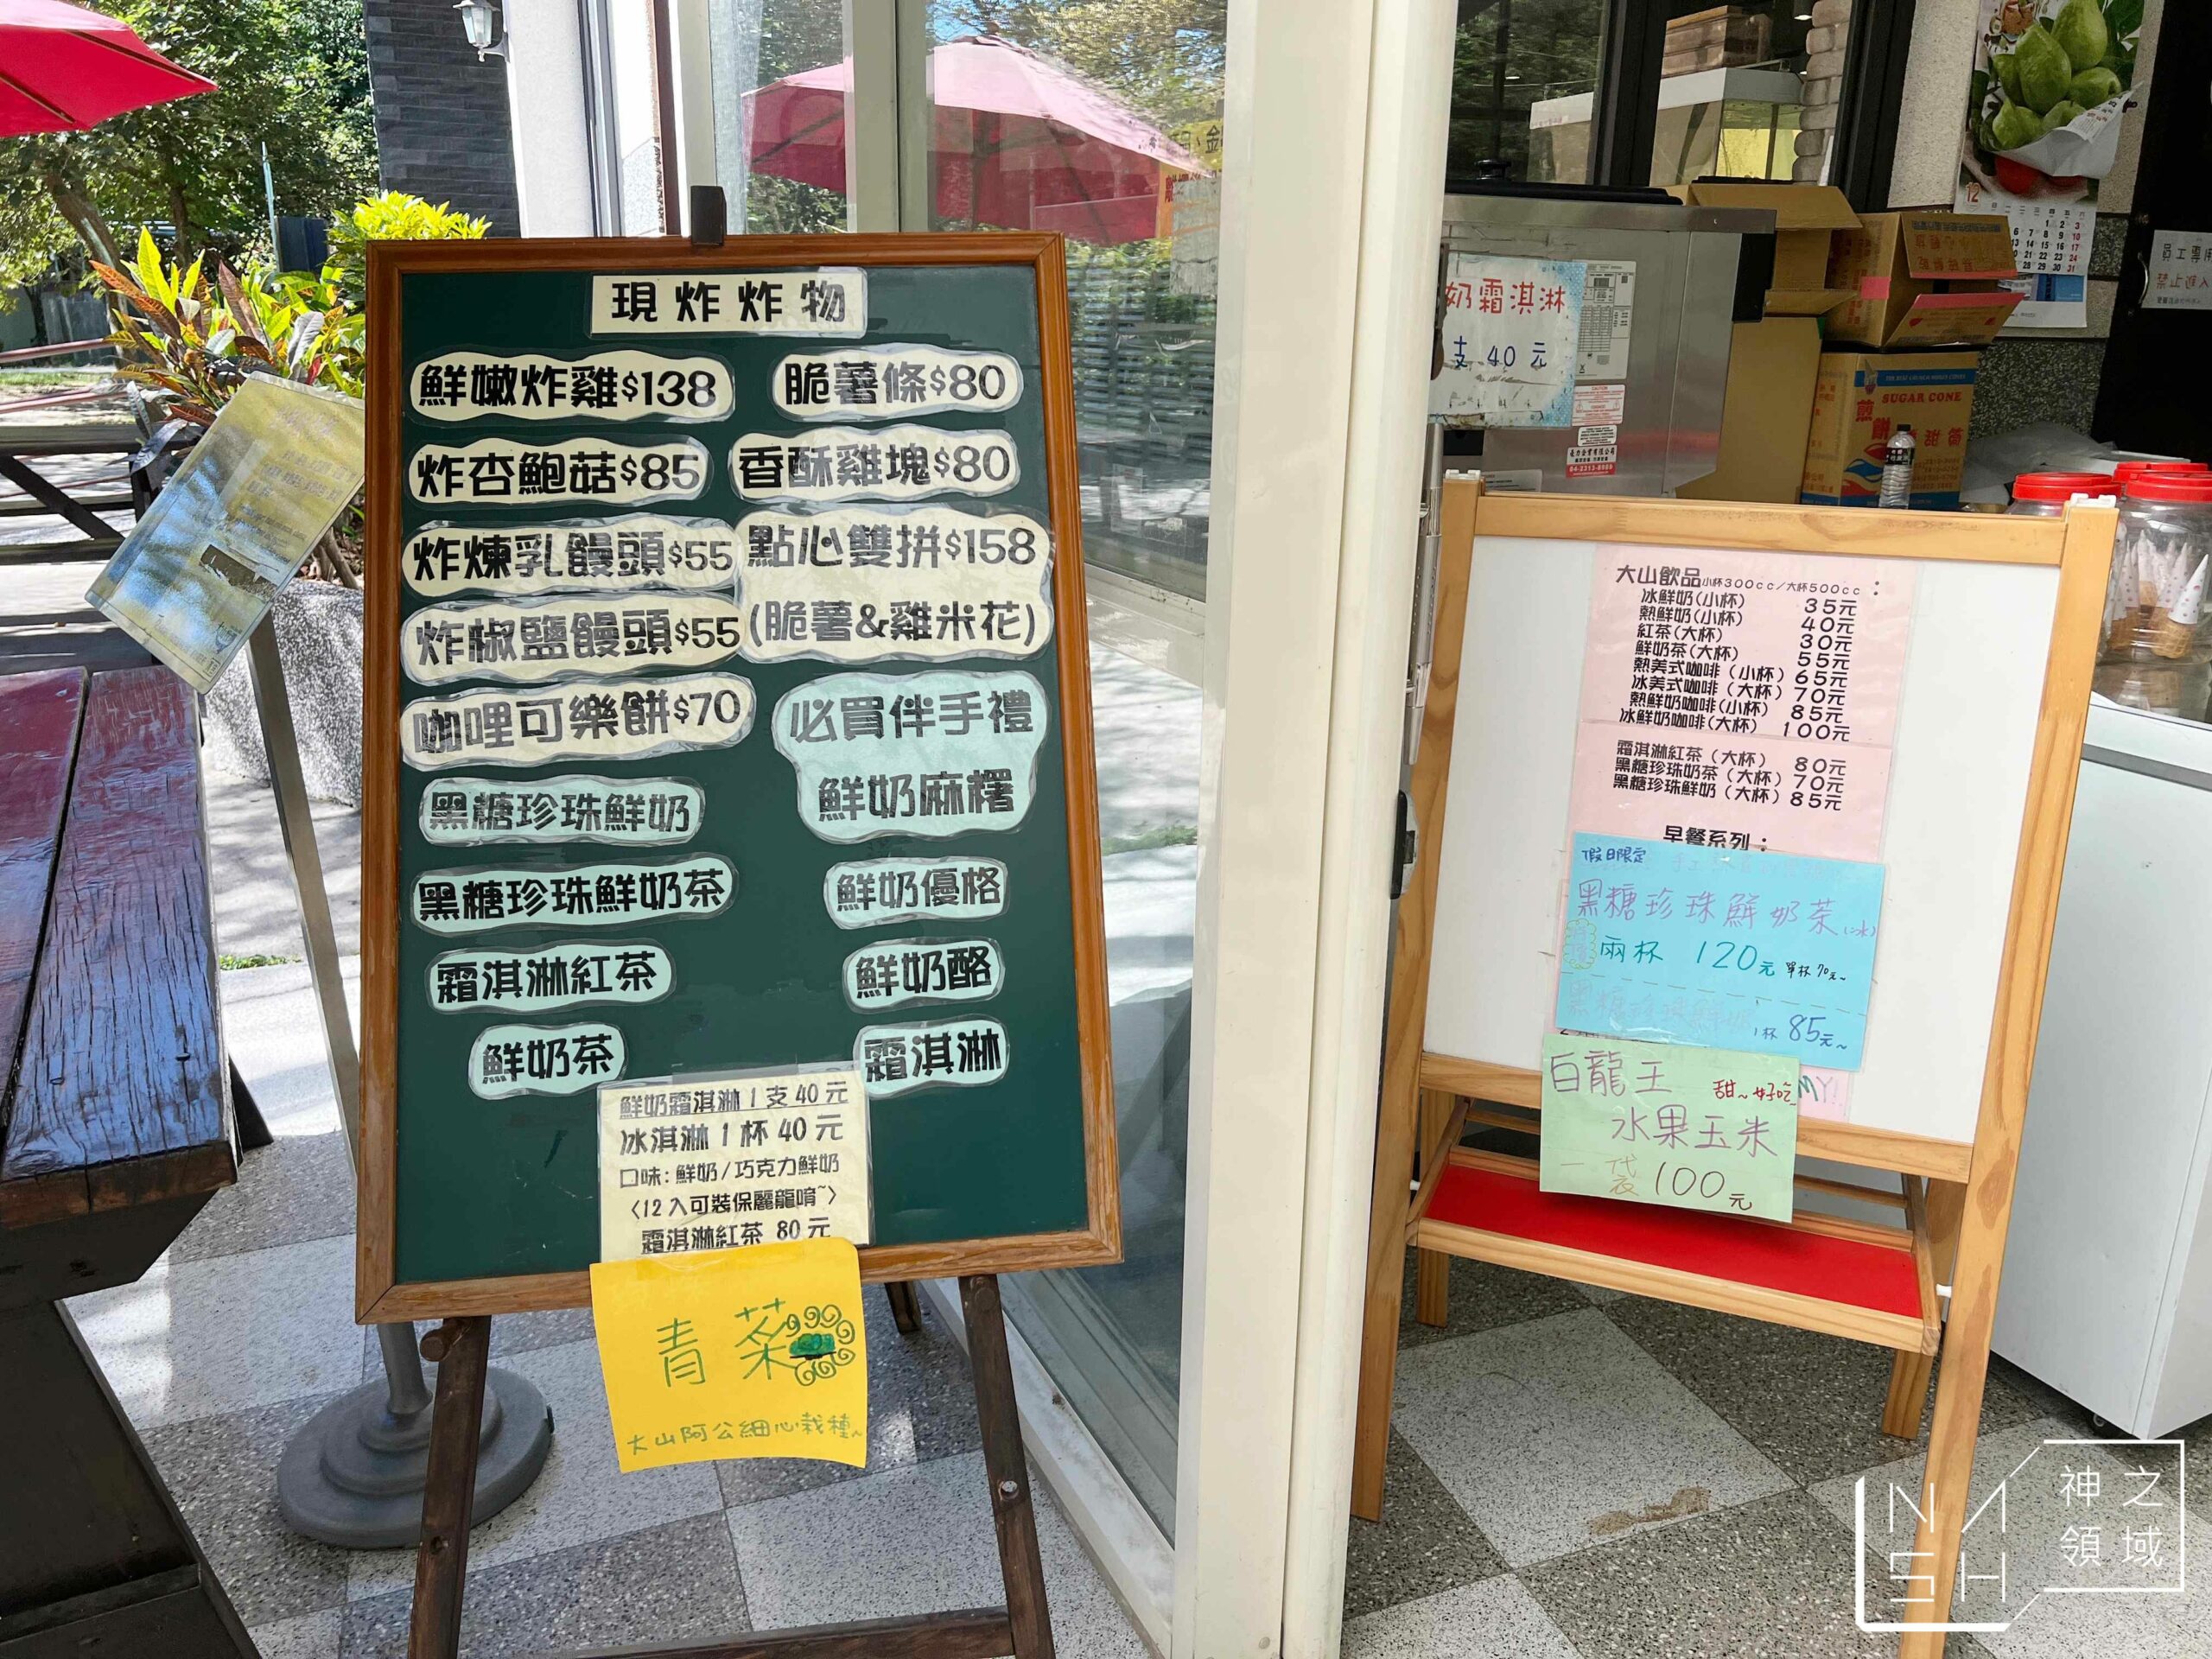 現炸炸物
鮮嫩炸雞$138
炸杏鮑菇$85
炸煉乳饅頭$55
炸椒鹽饅頭$55
咖哩可樂餅$70
黑糖珍珠鮮奶
黑糖珍珠鮮奶茶
霜淇淋紅茶
鮮奶茶
脆薯條$80
香酥雞塊$80
點心雙拼$158
(脆薯&雞米花)
必買伴手禮
鮮奶麻糬
鮮奶優格
鮮奶酪
霜淇淋
鮮奶霜淇淋1支40元
冰淇淋1杯40元
口味:鮮奶/巧克力鮮奶
〈12入可裝保麗龍唷~〉
霜淇淋紅茶 80元
青菜
大山阿公細心栽種~
奶霜淇淋
支 40 元
SUGAR CONE
煎餅甜筒
04-2313-8909
12
員工專用
禁止進入
大山飲品小杯300cc/大杯500cc:
冰鮮奶(小杯) 35元
熱鮮奶(小杯) 40元
紅茶(大杯) 30元
鮮奶茶(大杯) 55元
熱美式咖啡(小杯) 65元
冰美式咖啡(大杯) 70元
熱鮮奶咖啡(小杯) 85元
冰鮮奶咖啡(大杯) 100元
霜淇淋紅茶(大杯) 80元
黑糖珍珠奶茶(大杯) 70元
黑糖珍珠鮮奶(大杯) 85元
早餐系列:
假日限定
黑糖珍珠鮮奶茶(冰)
兩杯 120元 單杯70元~
黑糖珍珠鮮奶 1杯 85元~
白龍王 甜~好吃
水果玉米
一袋100元
MY!
NMSH
神之領域